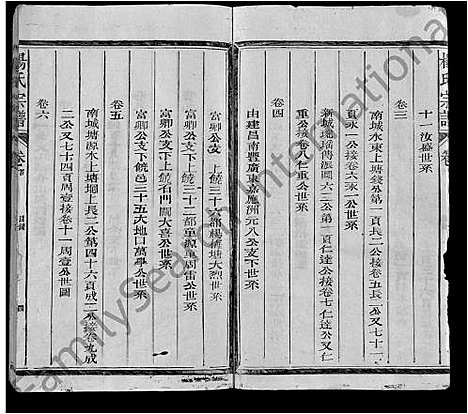 楊氏宗譜
十一汝盛世系
卷三
南城之東上塘錢公第一頁長二公接卷五長二公又七十一
頁永一公接卷六永一公世系
新城瑤瑤傳派圖六二公第一頁仁達公接卷七仁達公又
重公接卷八仁重公世系
卷四
由建昌南豐廣東嘉應洲元八公支下世系
富卿公支 上饒三十六都楊梅塘大烈世系
富卿公支下饒邑三十二都單源單周雷公世系
富卿公支下上饒石門關大喜公世系
富卿公支下饒邑三十五大地口萬舉公世系
卷五
南城塘源木上塘堌上長二公第四十六頁成二公接卷九成
二公又七十四頁周壹接卷十一周壹公世圖
卷六
楊氏宗譜
目錄
四
FamilySearch International